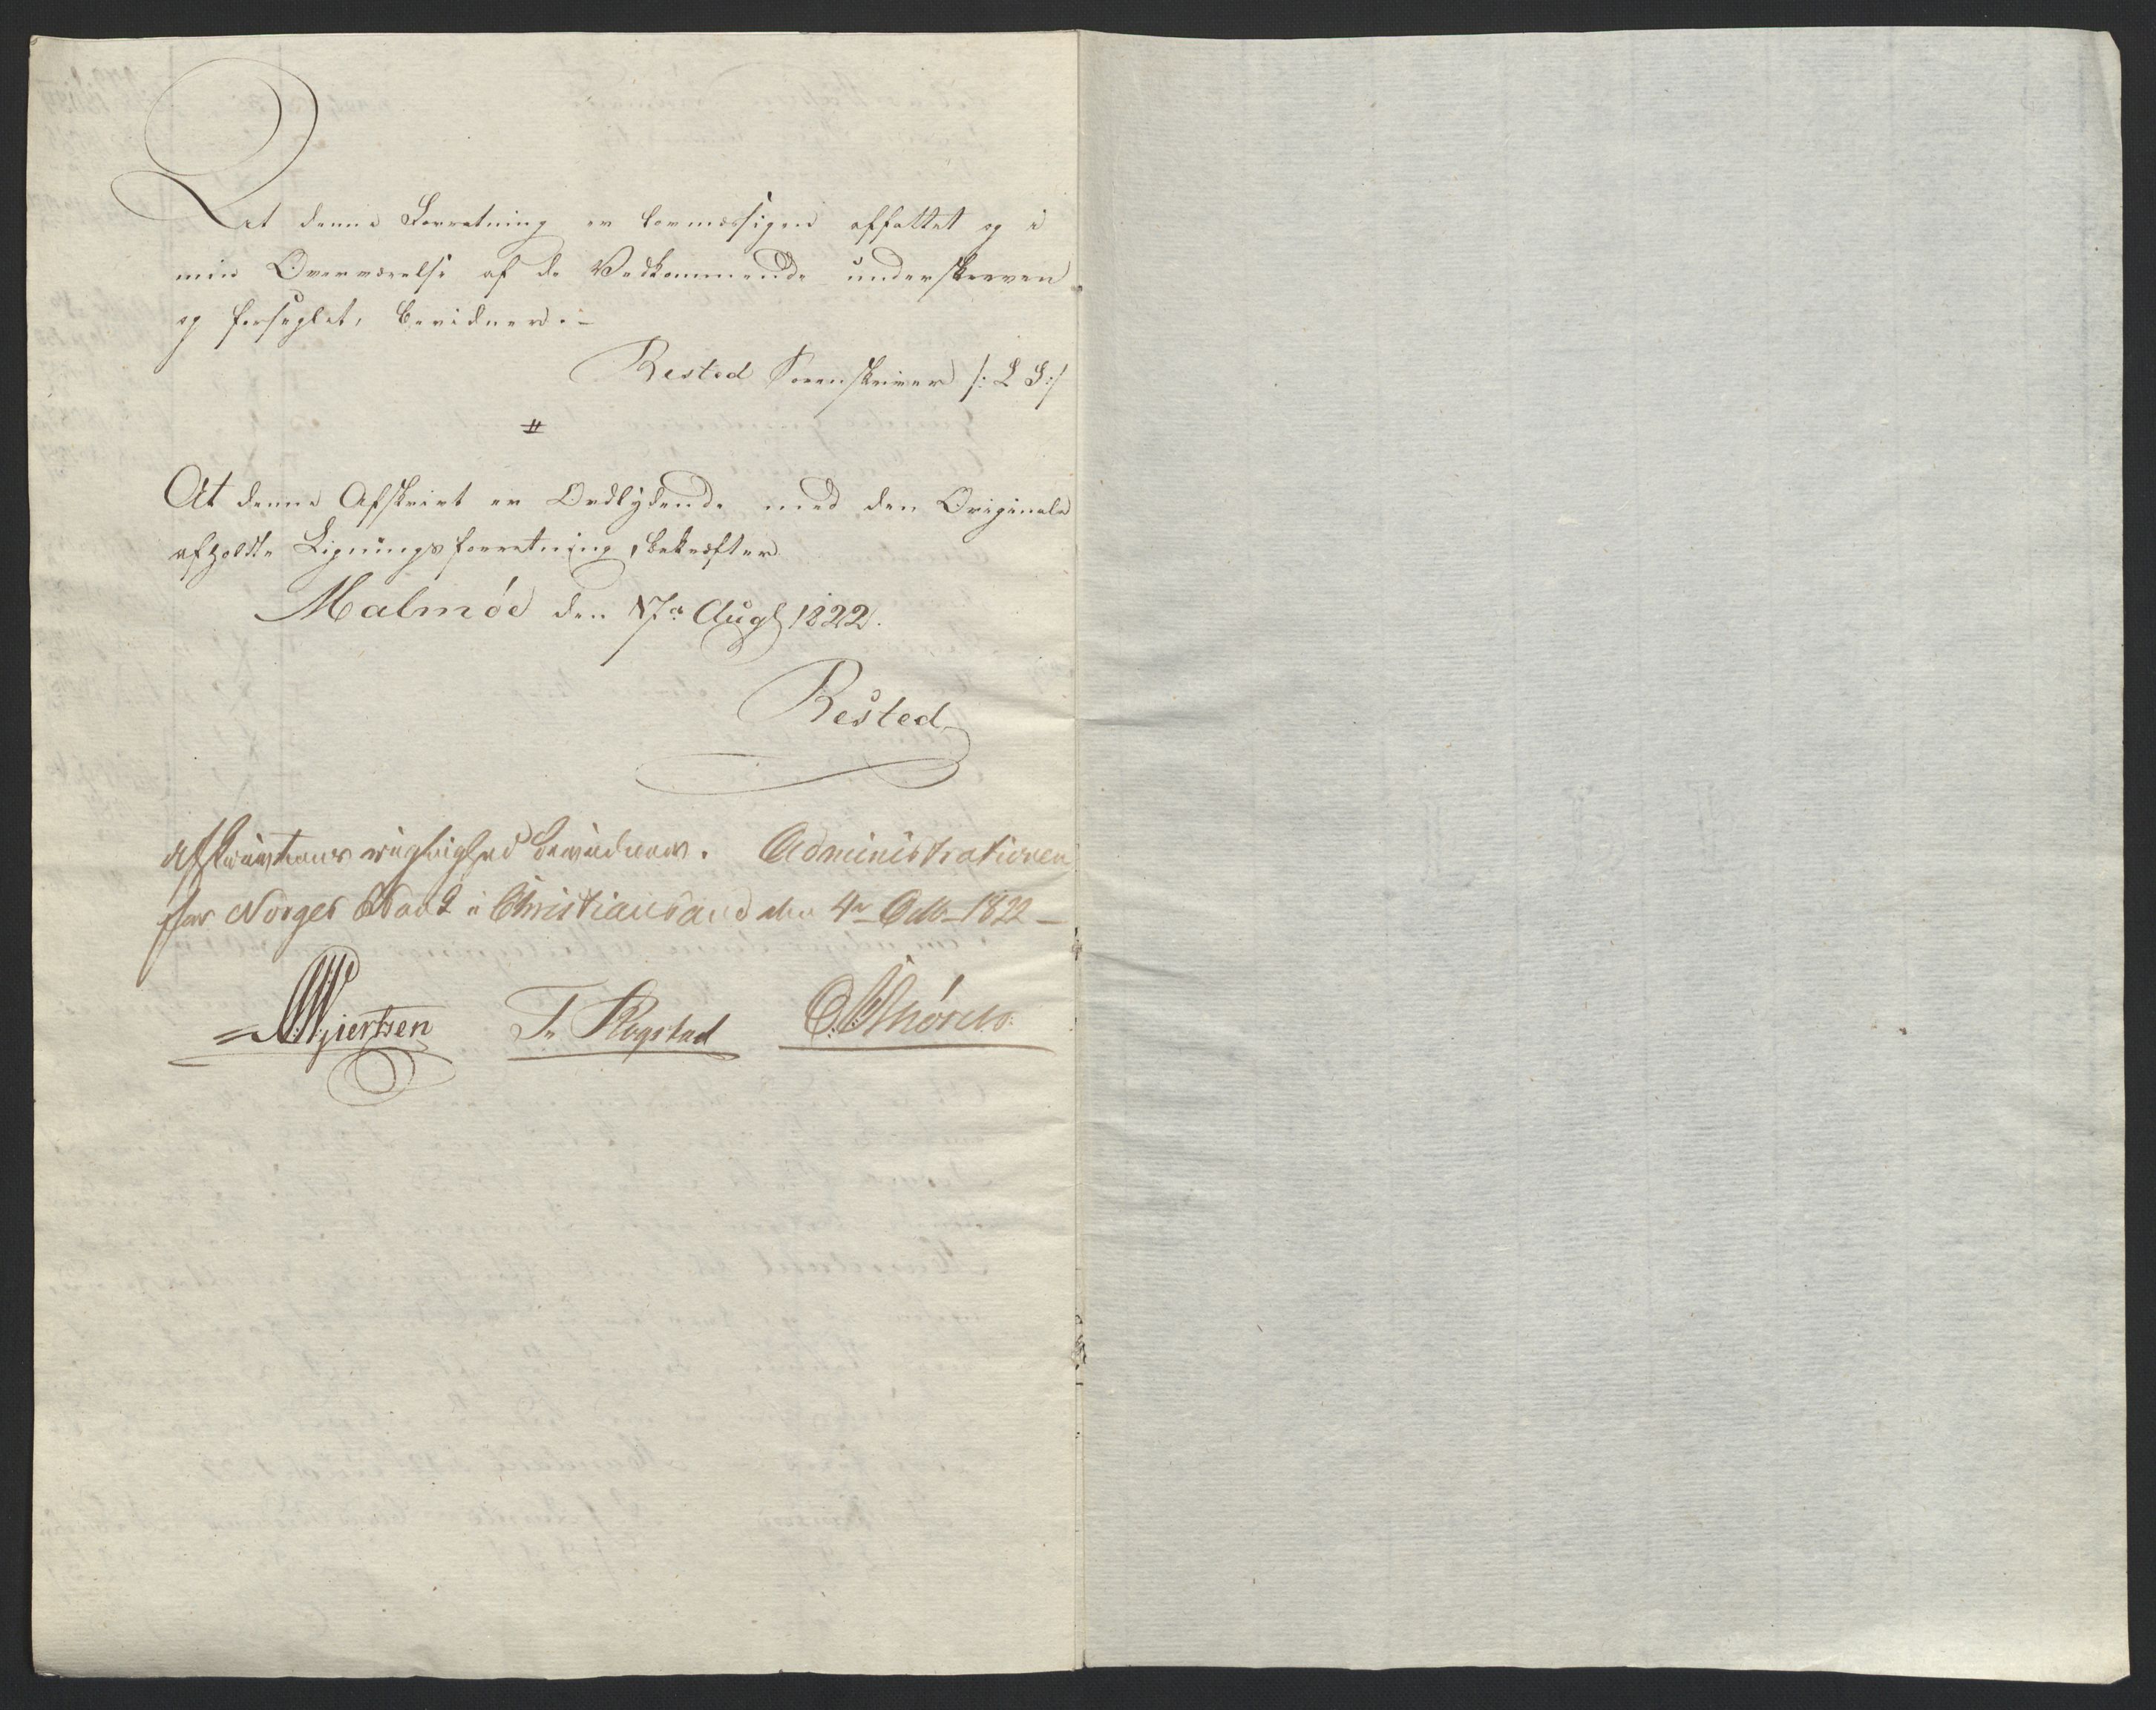 At denne Forretning er lovmæssigen affattet og i
min Overværelse af de Vedkommende underskreven
og forseglet, bevidner.-
Rested Sorenskriver /: L S:/
At denne Afskrivt er Ordlydende med den Originale
afholdte Ligningsforretning, bekræfter
Malmöe den 17de Augt 1822.
Rested
Afskrivtens rigtighed bevidner. Administrationen
for Norges Bank i Christiansand den 4de Octbr 1822 -
Giertsen Fr Rogstad